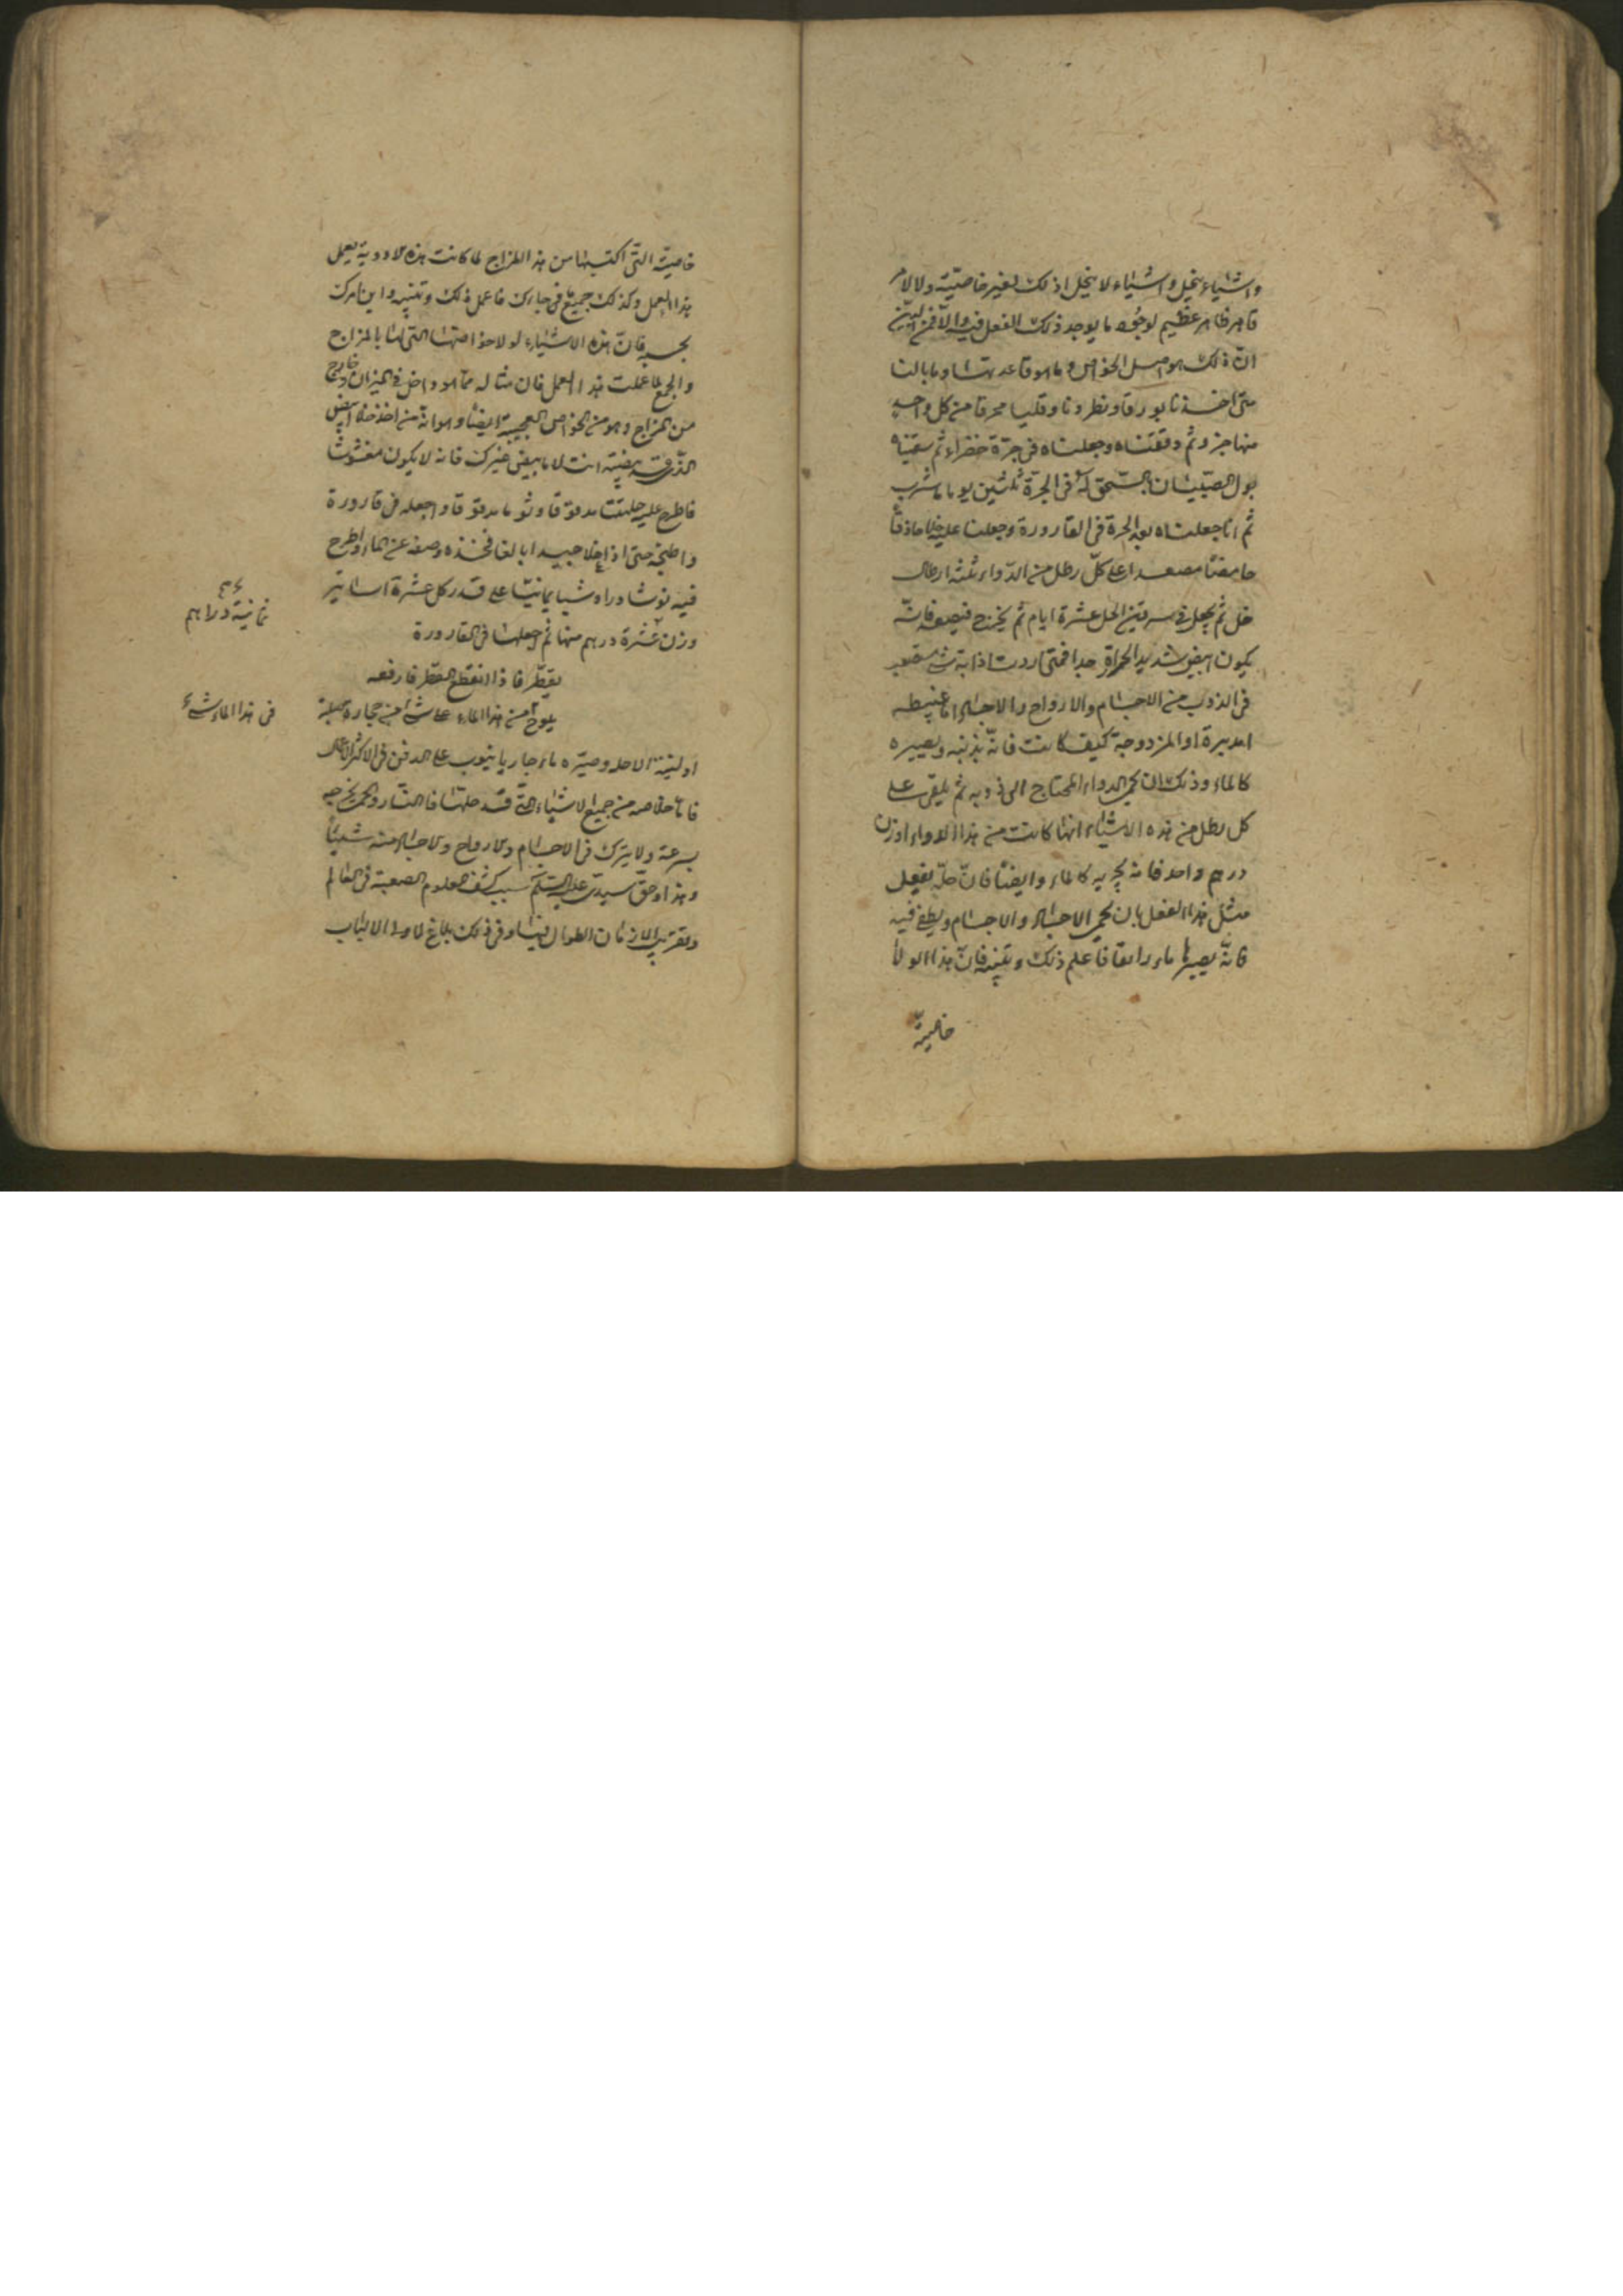 واشياء ينحل واشياء لا ينحل اذ لك لغير خاصيّته ولا لامر
قاهر ظاهر عظيم لوجوه ما يوجد ذلك الفعل فيه والّا فمن البيّن
انّ ذلك هو اصل الخواص وما هو قاعدتها وما بالنا
متى اخذنا بورقا ونطرونا وقليا محرقا من كل واحد
منها جزو ثم دققناه وجعلناه فى جرّة خضراء ثم سقيناه
بول الصبيان بالسّحق له فى الجرة ثلثين يوما ما شرب
ثم انا جعلناه بعد الجرة فى القارورة وجعلنا عليه خلا حاذقا
حامضا مصعدا على كلّ رطل من الدّواء ثلثة ارطال
خل ثم يجعل فى سرقين الخل عشرة ايام ثم يخرج فيصعد فانّه
يكون ابيض شديد الحمرة جدا فمتى اردت اذابة شىء مصعب
فى الذوب من الاجسام والارواح والاجساد اما غبيطه
المدبرة او المزدوجة كيف كانت فانّه يذيبه ويصيره
كالماء وذلك ان يحمى الدواء المحتاج الى ذوبه ثم يلقى على
كل رطل من هذه الاشياء ايّها كانت من هذا الدواء وزن
درهم واحد فانه يجريه كالماء وايضا فانّ حلّه يفعل
مثل هذا الفعل بان يحمى الاجساد والاجسام ويطفى فيه
فانّه يصيرها ماء رائقا فاعلم ذلك وتبيّنه فانّ هذا لولا
خاصيّة
خاصيّة التى اكتسبها من هذا المزاج لما كانت هذه الادوية يعمل
هذا العمل وكذلك جميع فى جارك فاعمل ذلك وتبيّنه وابن امرك
بحسبه فانّ هذه الاشياء لولا خواصّها التى لها بالمزاج
والجمع لما عملت هذا العمل فان مثاله ممّا هو داخل فى الميزان وخارج
من المزاج وهو من الخواص العجيبة ايضا وهو انّه من اخذ خلا ابيض
الذى قد بيضته انت لا ما يبيض غيرك فانه لا يكون مغشوشا
فاطرح عليه حلتيتا مدقوقا وثوما مدقوقا واجعله فى قارورة
واطبخه حتى اذا غلا جيدا بالغا فخذه وصفه عن الماء واطرح
فيه نوشادرا وشبا يمانيّا على قدر كل عشرة اساتير
وزن عشرة درهم منها ثم اجعلها فى القارورة
ثمانية دراهم
يقطّر فاذا انقطع القطر فارفعه
يلوح من هذا الماء على شىء من حجارة صلبة
فى هذا الماء شىء
او لينة الا حله وصيّره ماء جاريا ينوب على الدفن فى الاكثر الاعمال
فامّا خلاصه من جميع الاشياء التى قد حلّها فالنّار والحمى يخرجه
بسرعة ولا يترك فى الاجسام والارواح والاجساد منه شيئا
وهذا وحقّ سيدى عليه السّلم سبب كشف العلوم الصعبة فى العالم
وتقريب الازمان الطوال فيها وفى ذلك بلاغ لاولى الالباب